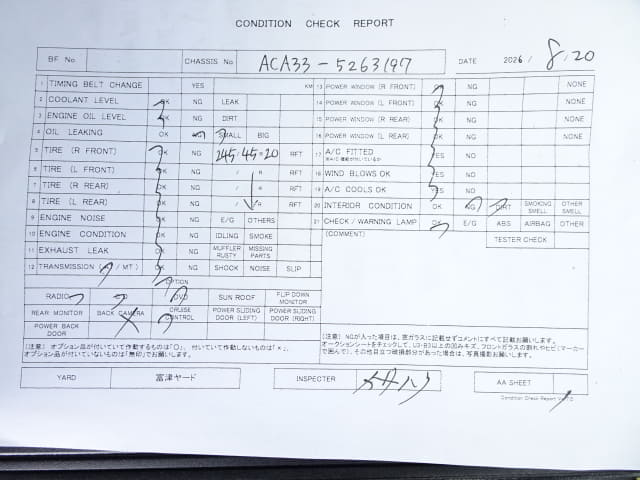 CONDITION CHECK REPORT
BF No CHASSIS No ACA33-5263197 DATE 2026/ 8/20
1 TIMING BELT CHANGE YES KM
2 COOLANT LEVEL OK NG LEAK
3 ENGINE OIL LEVEL OK NG DIRT
4 OIL LEAKING OK NG SMALL BIG
5 TIRE (R FRONT) OK NG 245/45=20 RFT
6 TIRE (L FRONT) OK NG / R RFT
7 TIRE (R REAR) OK NG / R RFT
8 TIRE (L REAR) OK NG / R RFT
9 ENGINE NOISE OK NG E/G OTHERS
10 ENGINE CONDITION OK NG IDLING SMOKE
11 EXHAUST LEAK OK NG MUFFLER RUSTY MISSING PARTS
12 TRANSMISSION (A/MT) OK NG SHOCK NOISE SLIP
13 POWER WINDOW (R FRONT) OK NG NONE
14 POWER WINDOW (L FRONT) OK NG NONE
15 POWER WINDOW (R REAR) OK NG NONE
16 POWER WINDOW (L REAR) OK NG NONE
17 A/C FITTED YES NO
18 WIND BLOWS OK YES NO
19 A/C COOLS OK YES NO
20 INTERIOR CONDITION OK NG DIRT SMOKING SMELL OTHER SMELL
21 CHECK/WARNING LAMP OK E/G ABS AIRBAG OTHER
(COMMENT) TESTER CHECK
OPTION
RADIO CD DVD SUN ROOF FLIP DOWN MONITOR
REAR MONITOR BACK CAMERA CRUISE CONTROL POWER SLIDING DOOR (LEFT) POWER SLIDING DOOR (RIGHT)
POWER BACK DOOR
(注意) オプション品が付いていて作動するものは「○」、付いていて作動しないものは「×」、
オプション品が付いていないものは「無印」でお願いします。
(注意) NGが入った項目は、窓ガラスに記載せずコメントにすべて記載お願いします。
オークションシートをチェックして、U3・B3以上の凹みキズ、フロントガラスの割れやヒビ(マーカー
で囲んで)、その他目立つ破損部分があった場合は、写真撮影お願いします。
YARD 富津ヤード INSPECTER AA SHEET
Condition Check Report